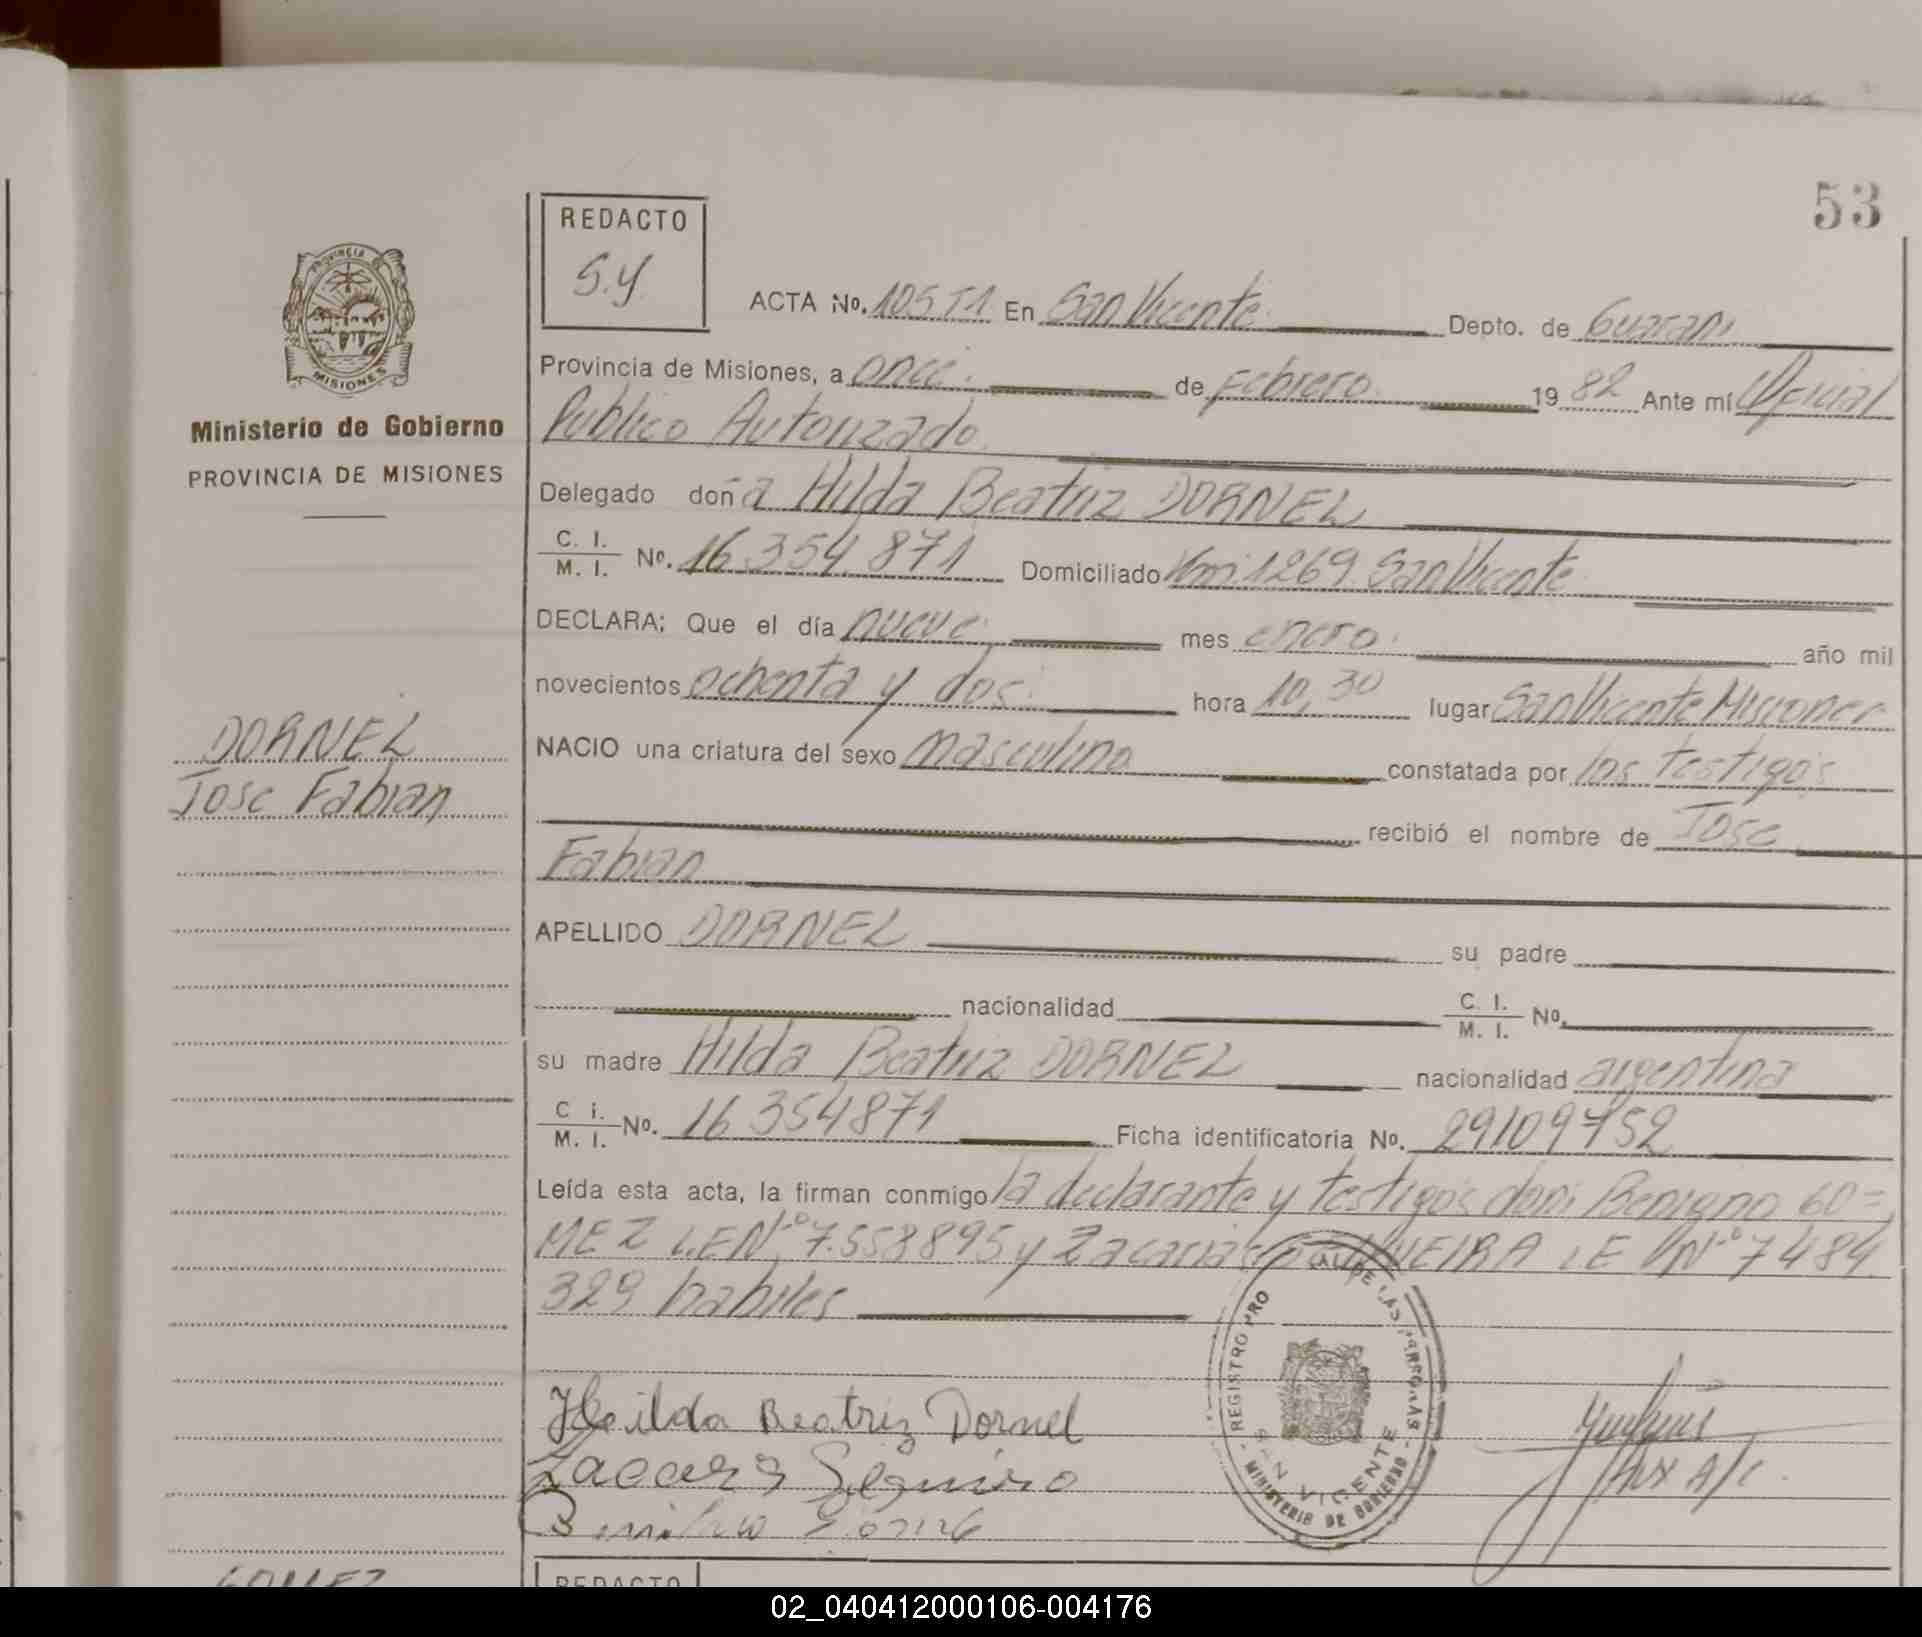 53
REDACTO
S.Y.
ACTA No. 105 T1 En San Vicente Depto. de Guarani
PROVINCIA DE
MISIONES
Provincia de Misiones, a once. de Febrero. 1982 Ante mí Oficial
Ministerio de Gobierno
Publico Autorizado.
PROVINCIA DE MISIONES
Delegado doña Hilda Beatriz DORNEL
C. I.
M. I. No. 16.354.871 Domiciliado Km: 1269. San Vicente.
DECLARA; Que el día nueve. mes enero. año mil
novecientos ochenta y dos. hora 10,30 lugar San Vicente Misiones
DORNEL
NACIO una criatura del sexo masculino constatada por los testigos
Jose Fabian
recibió el nombre de Jose
Fabian
APELLIDO DORNEL su padre
nacionalidad C. I.
M. I. No.
su madre Hilda Beatriz DORNEL nacionalidad argentina
C i.
M. I. No. 16 354871 Ficha identificatoria No. 29109752
Leída esta acta, la firman conmigo la declarante y testigos don: Benigno GO=
MEZ L.E Nº 7.558895 y Zacarias L E Nº 7484.
329 habiles
REGISTRO PRO DE LAS PERSONAS
SAN VICENTE
MINISTERIO DE GOBIERNO
Hilda Beatriz Dornel
AUX A/C.
GOMEZ
REDACTO
02_040412000106-004176